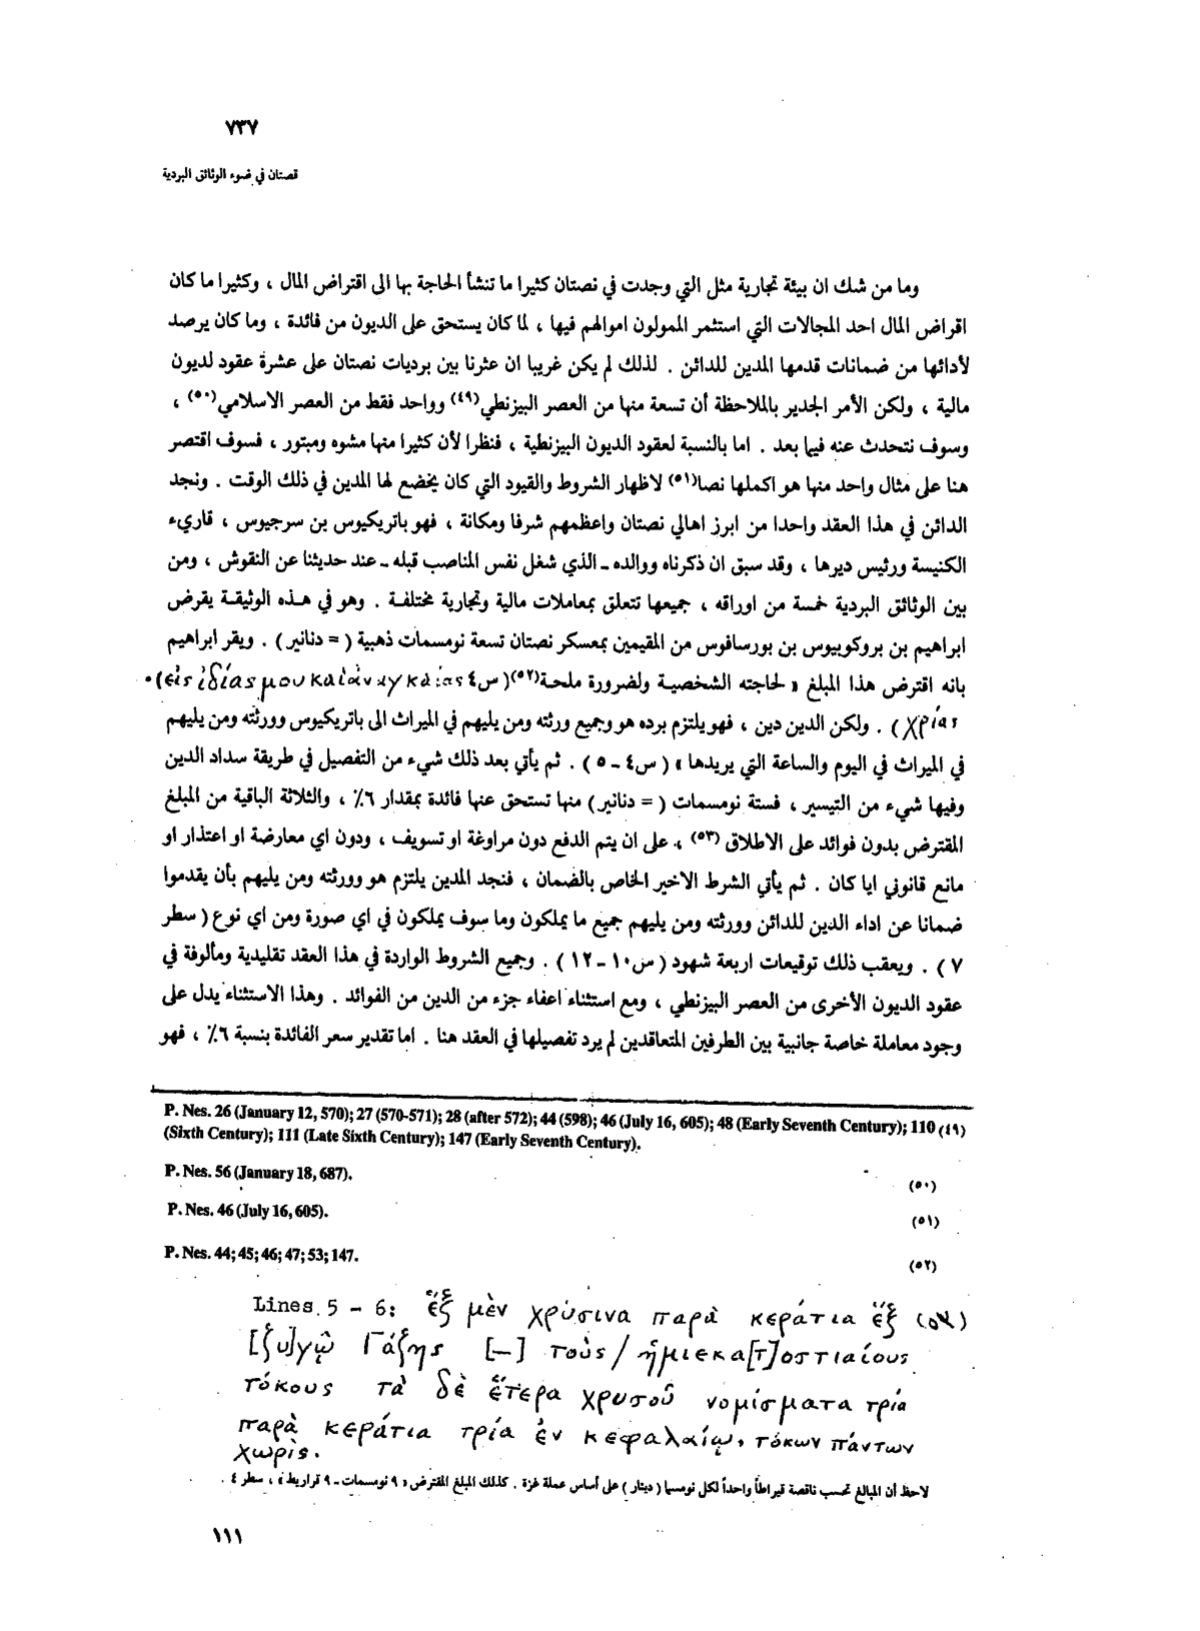 ٧٣٧
قصتان في ضوء الوثائق البردية
وما من شك ان بيئة تجارية مثل التي وجدت في نصتان كثيرا ما تنشأ الحاجة بها الى اقتراض المال ، وكثيرا ما كان
اقراض المال احد المجالات التي استثمر الممولون اموالهم فيها ، لما كان يستحق على الديون من فائدة ، وما كان يرصد
لأدائها من ضمانات قدمها المدين للدائن . لذلك لم يكن غريبا ان عثرنا بين برديات نصتان على عشرة عقود لديون
مالية ، ولكن الأمر الجدير بالملاحظة أن تسعة منها من العصر البيزنطي(٤٩) وواحد فقط من العصر الاسلامي(٥٠) ،
وسوف نتحدث عنه فيما بعد . اما بالنسبة لعقود الديون البيزنطية ، فنظرا لأن كثيرا منها مشوه ومبتور ، فسوف اقتصر
هنا على مثال واحد منها هو اكملها نصا(٥١) لاظهار الشروط والقيود التي كان يخضع لها المدين في ذلك الوقت . ونجد
الدائن في هذا العقد واحدا من ابرز اهالي نصتان واعظمهم شرفا ومكانة ، فهو باتريكيوس بن سرجيوس ، قاريء
الكنيسة ورئيس ديرها ، وقد سبق ان ذكرناه ووالده ـ الذي شغل نفس المناصب قبله ـ عند حديثنا عن النقوش ، ومن
بين الوثائق البردية خمسة من اوراقه ، جميعها تتعلق بمعاملات مالية وتجارية مختلفة . وهو في هذه الوثيقة يقرض
ابراهيم بن بروكوبيوس بن بورسافوس من المقيمين بمعسكر نصتان تسعة نومسمات ذهبية ( = دنانير ) . ويقر ابراهيم
بانه اقترض هذا المبلغ « لحاجته الشخصية ولضرورة ملحة(٥٢)( س٤ εἰς ἰδίας μου καὶ ἀναγκαίας)٠
χρίας ) . ولكن الدين دين ، فهو يلتزم برده هو وجميع ورثته ومن يليهم في الميراث الى باتريكيوس وورثته ومن يليهم
في الميراث في اليوم والساعة التي يريدها » ( س٤ ـ ٥ ) . ثم يأتي بعد ذلك شيء من التفصيل في طريقة سداد الدين
وفيها شيء من التيسير ، فستة نومسمات ( = دنانير ) منها تستحق عنها فائدة بمقدار ٦٪ ، والثلاثة الباقية من المبلغ
المقترض بدون فوائد على الاطلاق (٥٣) ، على ان يتم الدفع دون مراوغة او تسويف ، ودون اي معارضة او اعتذار او
مانع قانوني ايا كان . ثم يأتي الشرط الاخير الخاص بالضمان ، فنجد المدين يلتزم هو وورثته ومن يليهم بأن يقدموا
ضمانا عن اداء الدين للدائن وورثته ومن يليهم جميع ما يملكون وما سوف يملكون في اي صورة ومن اي نوع ( سطر
٧ ) . ويعقب ذلك توقيعات اربعة شهود ( س١٠ ـ ١٢ ) . وجميع الشروط الواردة في هذا العقد تقليدية ومألوفة في
عقود الديون الأخرى من العصر البيزنطي ، ومع استثناء اعفاء جزء من الدين من الفوائد . وهذا الاستثناء يدل على
وجود معاملة خاصة جانبية بين الطرفين المتعاقدين لم يرد تفصيلها في العقد هنا . اما تقدير سعر الفائدة بنسبة ٦٪ ، فهو
P. Nes. 26 (January 12, 570); 27 (570-571); 28 (after 572); 44 (598); 46 (July 16, 605); 48 (Early Seventh Century); 110 (٤٩)
(Sixth Century); 111 (Late Sixth Century); 147 (Early Seventh Century).
P. Nes. 56 (January 18, 687). (٥٠)
P. Nes. 46 (July 16, 605). (٥١)
P. Nes. 44; 45; 46; 47; 53; 147. (٥٢)
Lines. 5 - 6: ἓξ μὲν χρύσινα παρὰ κεράτια ἓξ (٥٣)
[ζυ]γῷ Γάζης [—] τοὺς / ἡμιεκα[τ]οστιαίους
τόκους τὰ δὲ ἕτερα χρυσοῦ νομίσματα τρία
παρὰ κεράτια τρία ἐν κεφαλαίῳ, τόκων πάντων
χωρὶς.
لاحظ أن المبالغ تحسب ناقصة قيراطاً واحداً لكل نومسما ( دينار ) على أساس عملة غزة . كذلك المبلغ المقترض « ٩ نومسمات ـ ٩ قراريط » ، سطر ٤ .
١١١